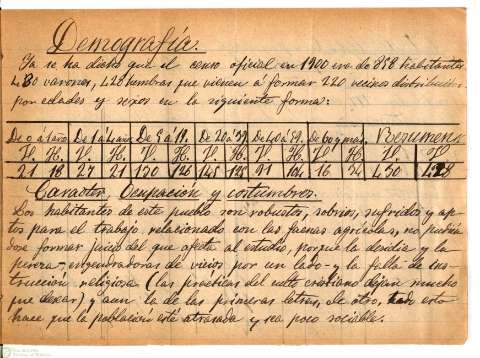 Demografía.
Ya se ha dicho que el censo oficial en 1900 era de 858 habitantes
430 varones, 428 hembras que vienen á formar 220 vecinos distribuidos
por edades y sexos en la siguiente forma:
De 0 á 1 año. De 1 á 4 años De 5 á 19. De 20 á 39 De 40 á 59. De 60 y mas. Resumen.
V. H. V. H. V. H. V. H. V. H. V. H. V. H.
21 18 27 21 120 126 145 91 104 16 34 430 428
Caracter, Ocupación y costumbres.
Los habitantes de este pueblo son robustos, sobrios, sufridos y ap
tos para el trabajo, relacionado con las faenas agrícolas, no pudién
dose formar juicio del que afecte al estudio, porque la desidia y la
pereza - engendradoras de vicios, por un lado - y la falta de ins-
trucción religiosa (las practicas del culto cristiano dejan mucho
que desear) y aun la de las primeras letras, de otro, esto
hace que la población esté atrasada y sea poco sociable.